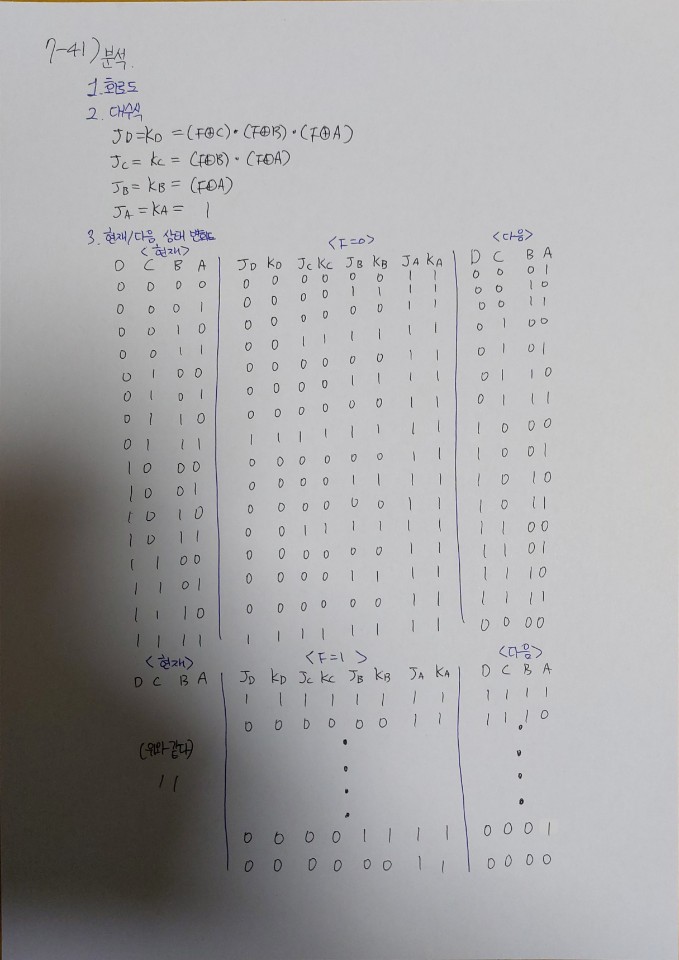 7-41) 분석.
1. 회로도
2. 대수식
JD=KD = (F⊕C)·(F⊕B)·(F⊕A)
JC = KC = (F⊕B)·(F⊕A)
JB = KB = (F⊕A)
JA = KA = 1
3. 현재/다음 상태 변화도
<현재> <F=0> <다음>
D C B A JD KD JC KC JB KB JA KA D C B A
0 0 0 0 0 0 0 0 0 0 1 1 0 0 0 1
0 0 0 1 0 0 0 0 1 1 1 1 0 0 1 0
0 0 1 0 0 0 0 0 0 0 1 1 0 0 1 1
0 0 1 1 0 0 1 1 1 1 1 1 0 1 0 0
0 1 0 0 0 0 0 0 0 0 1 1 0 1 0 1
0 1 0 1 0 0 0 0 1 1 1 1 0 1 1 0
0 1 1 0 0 0 0 0 0 0 1 1 0 1 1 1
0 1 1 1 1 1 1 1 1 1 1 1 1 0 0 0
1 0 0 0 0 0 0 0 0 0 1 1 1 0 0 1
1 0 0 1 0 0 0 0 1 1 1 1 1 0 1 0
1 0 1 0 0 0 0 0 0 0 1 1 1 0 1 1
1 0 1 1 0 0 1 1 1 1 1 1 1 1 0 0
1 1 0 0 0 0 0 0 0 0 1 1 1 1 0 1
1 1 0 1 0 0 0 0 1 1 1 1 1 1 1 0
1 1 1 0 0 0 0 0 0 0 1 1 1 1 1 1
1 1 1 1 1 1 1 1 1 1 1 1 0 0 0 0
<현재> <F=1> <다음>
D C B A JD KD JC KC JB KB JA KA D C B A
1 1 1 1 1 1 1 1 1 1 1 1
0 0 0 0 0 0 1 1 1 1 1 0
(위와 같다)
11
0 0 0 0 1 1 1 1 0 0 0 1
0 0 0 0 0 0 1 1 0 0 0 0